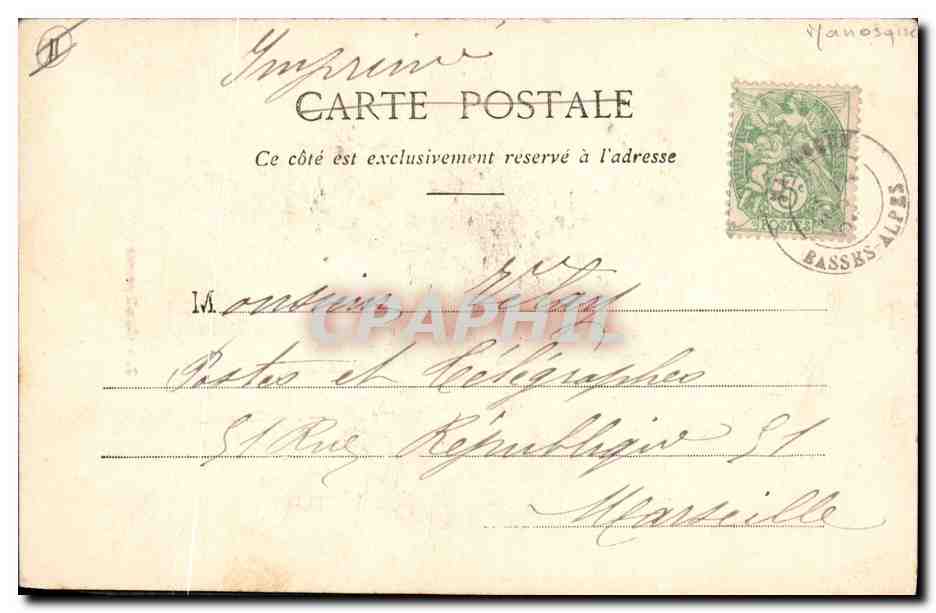 II
Manosque
Imprimé
CARTE POSTALE
Ce côté est exclusivement reservé à l'adresse
5c
POSTES
BASSES-ALPES
Monsieur Velay
CPAPHIL
Postes et Télégraphes
51 Rue République 51
Marseille